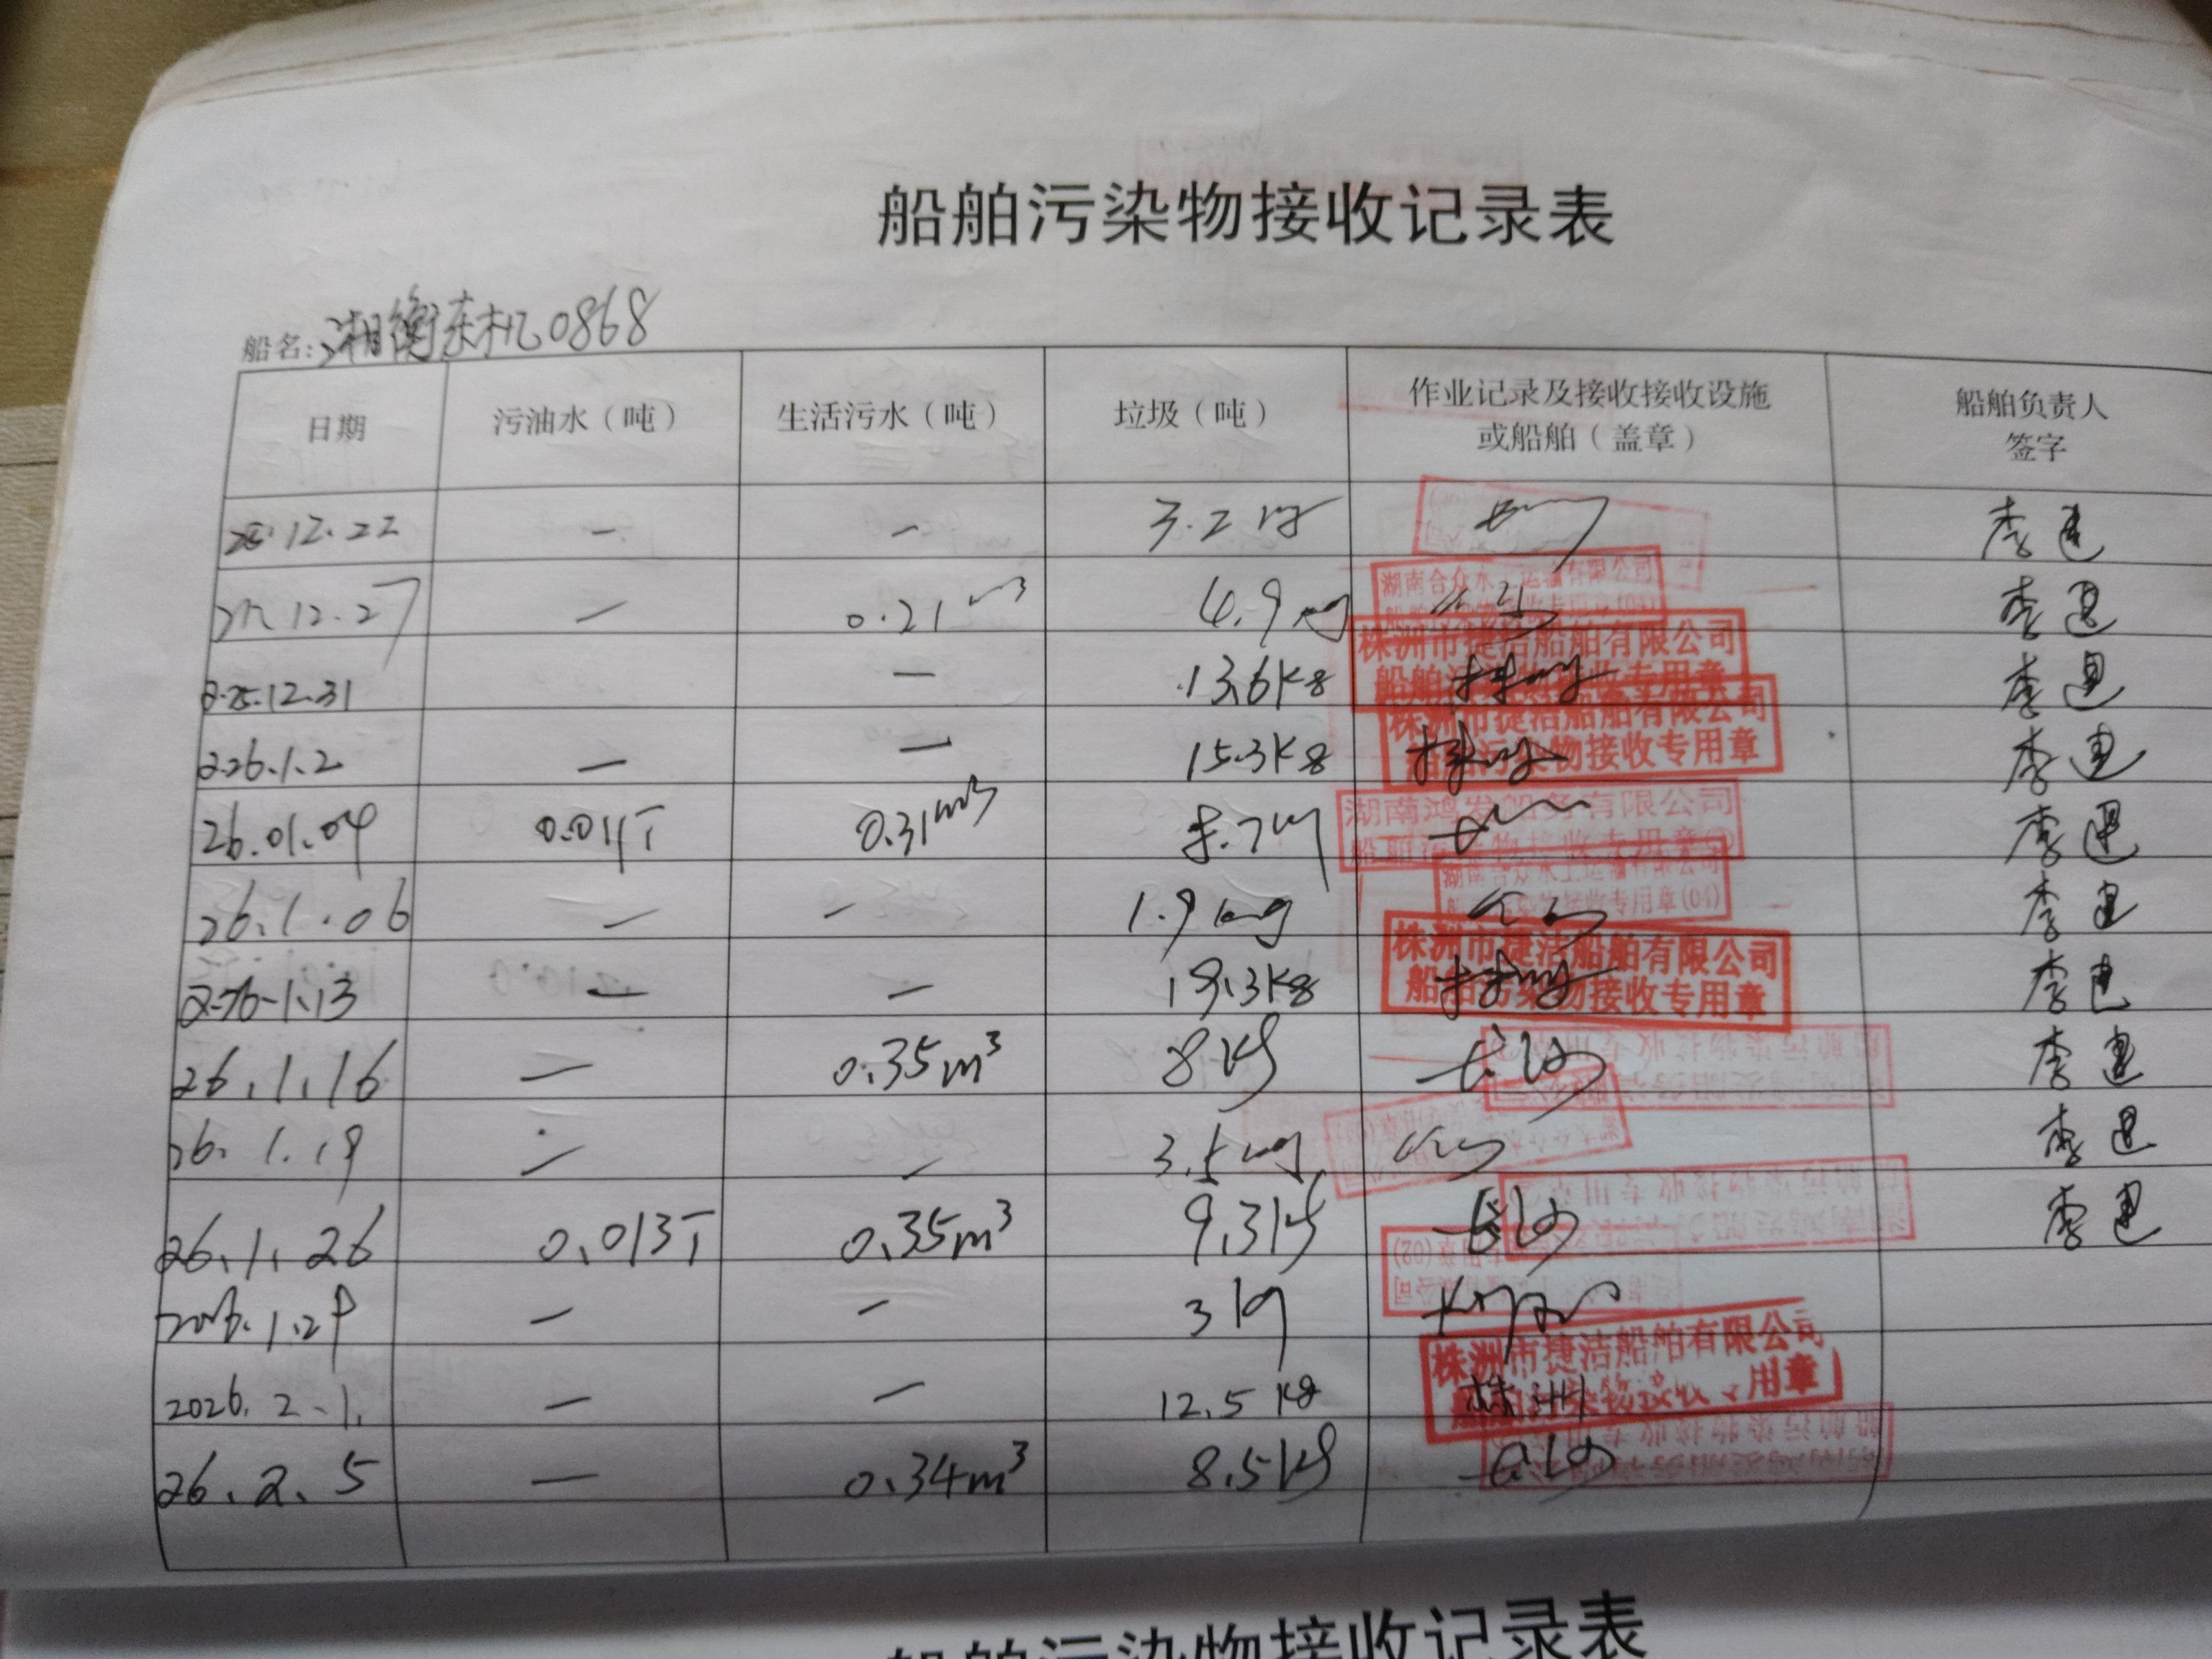 船舶污染物接收记录表
船名: 湘衡东机0868
日期 污油水（吨） 生活污水（吨） 垃圾（吨） 作业记录及接收接收设施或船舶（盖章） 船舶负责人签字
25.12.22 — — 3.2kg 李
12.27 — 0.21m³ 4.9kg 湖南合众水上运输有限公司 李
2025.12.31 — 13.6Kg 株洲 株洲市捷洁船舶有限公司 船舶污染物接收专用章 李
2026.1.2 — — 15.3Kg 株洲 株洲市捷洁船舶有限公司 船舶污染物接收专用章 李
26.01.04 0.011T 0.31m³ 8.7kg 湖南鸿发船务有限公司 船舶污染物接收专用章 李
26.1.06 — — 1.9kg 湖南合众水上运输有限公司 船舶污染物接收专用章(04) 李
2026.1.13 — — 19.3Kg 株洲 株洲市捷洁船舶有限公司 船舶污染物接收专用章 李
26.1.16 — 0.35m³ 8Kg 长沙 船舶污染物接收专用章 李
26.1.19 — — 3.5kg 李
26.1.26 0.013T 0.35m³ 9.3Kg 长沙 船舶污染物接收专用章 李
2026.1.29 — — 3kg (02)
2026.2.1. — — 12.5Kg 株洲 株洲市捷洁船舶有限公司 船舶污染物接收专用章
26.2.5 — 0.34m³ 8.5Kg 长沙 船舶污染物接收专用章
船舶污染物接收记录表